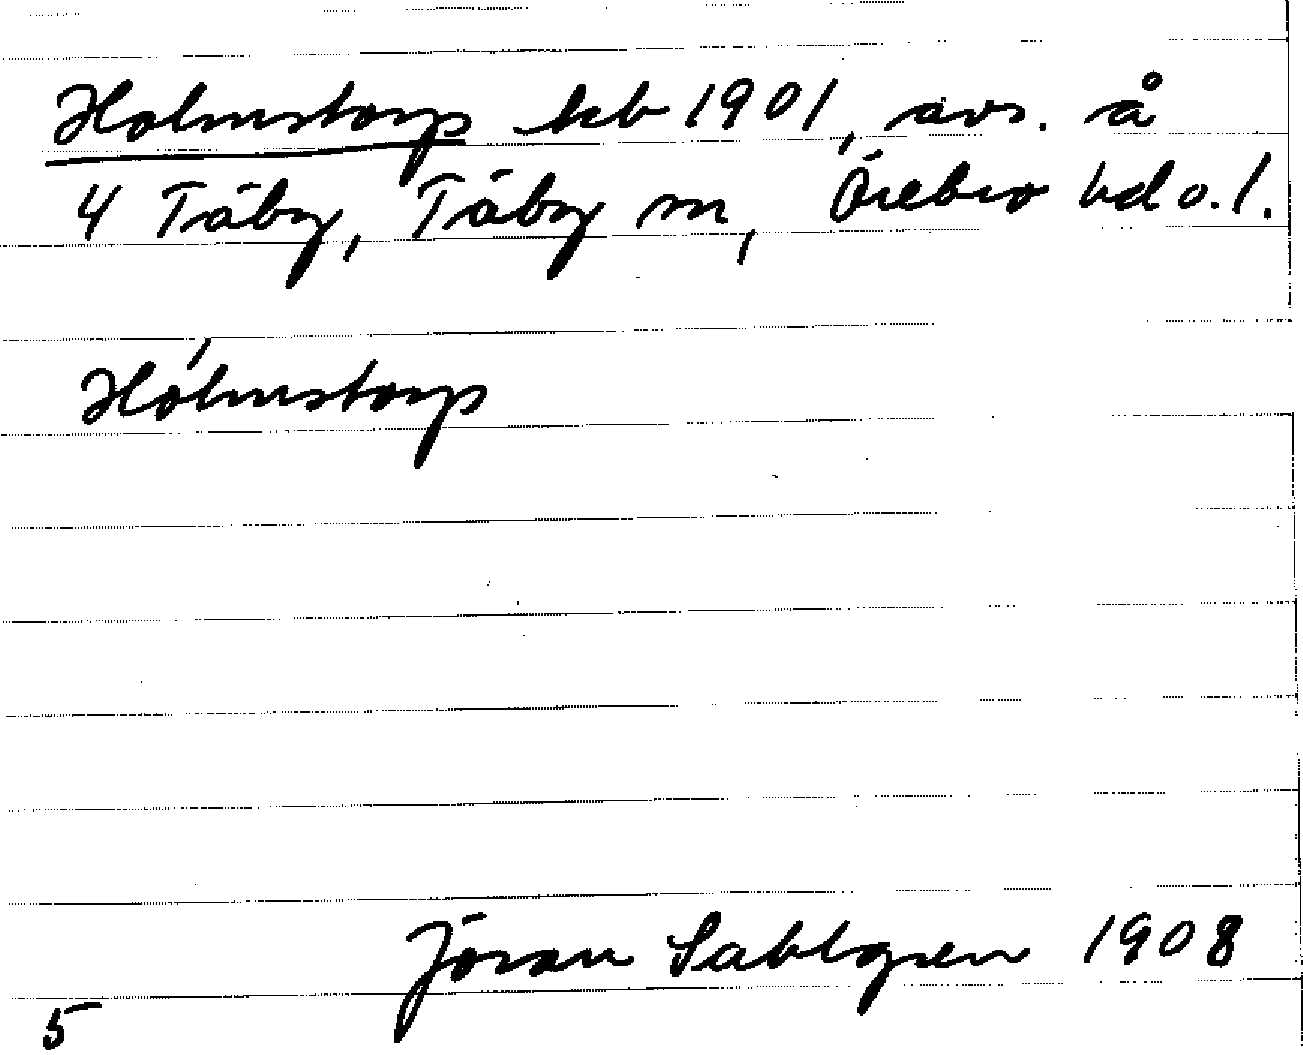 Holmstorp kb 1901, avs. å
4 Täby, Täby sn, Örebro hd o. l.
Hólmstorp
Jöran Sahlgren 1908
5